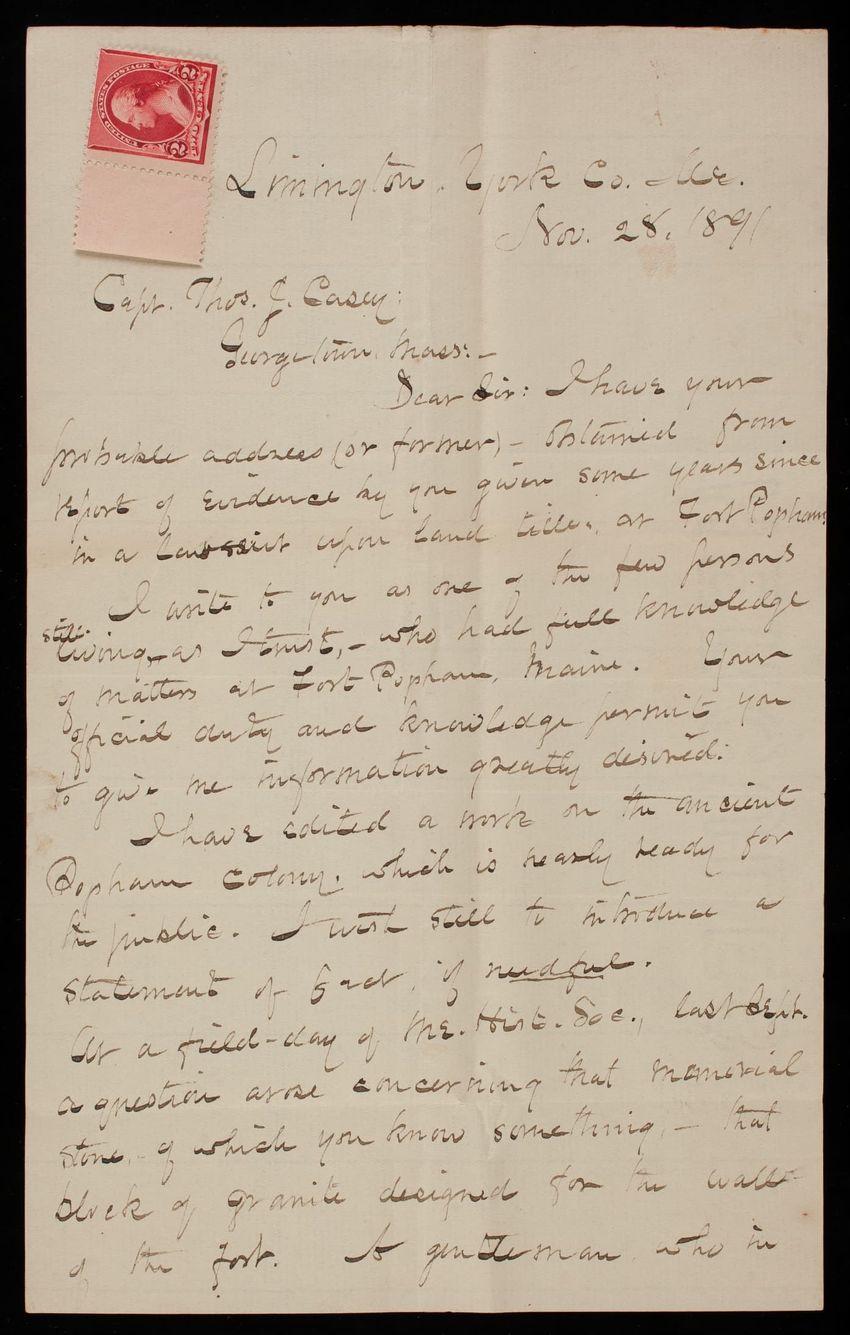 UNITED STATES POSTAGE
2 2
Limington, York Co. Me.
Nov. 28, 1891
Capt. Thos. J. Casey:
Georgetown, Mass:-
Dear Sir: I have your
probable address (or former) - obtained from
report of evidence by you given some years since
in a lawsuit upon land titles, at Fort Popham.
I write to you as one of the few persons
still
living,- as I trust,- who had full knowledge
of matters at Fort Popham, Maine. Your
official duty and knowledge permit you
to give me information greatly desired.
I have edited a work on the ancient
Popham colony, which is nearly ready for
the public. I wish still to introduce a
statement of fact, if needful.
At a field-day of Me. Hist. Soc., last Sept.
a question arose concerning that memorial
stone,- of which you know something,- that
block of granite designed for the wall
of the fort. A gentleman who in